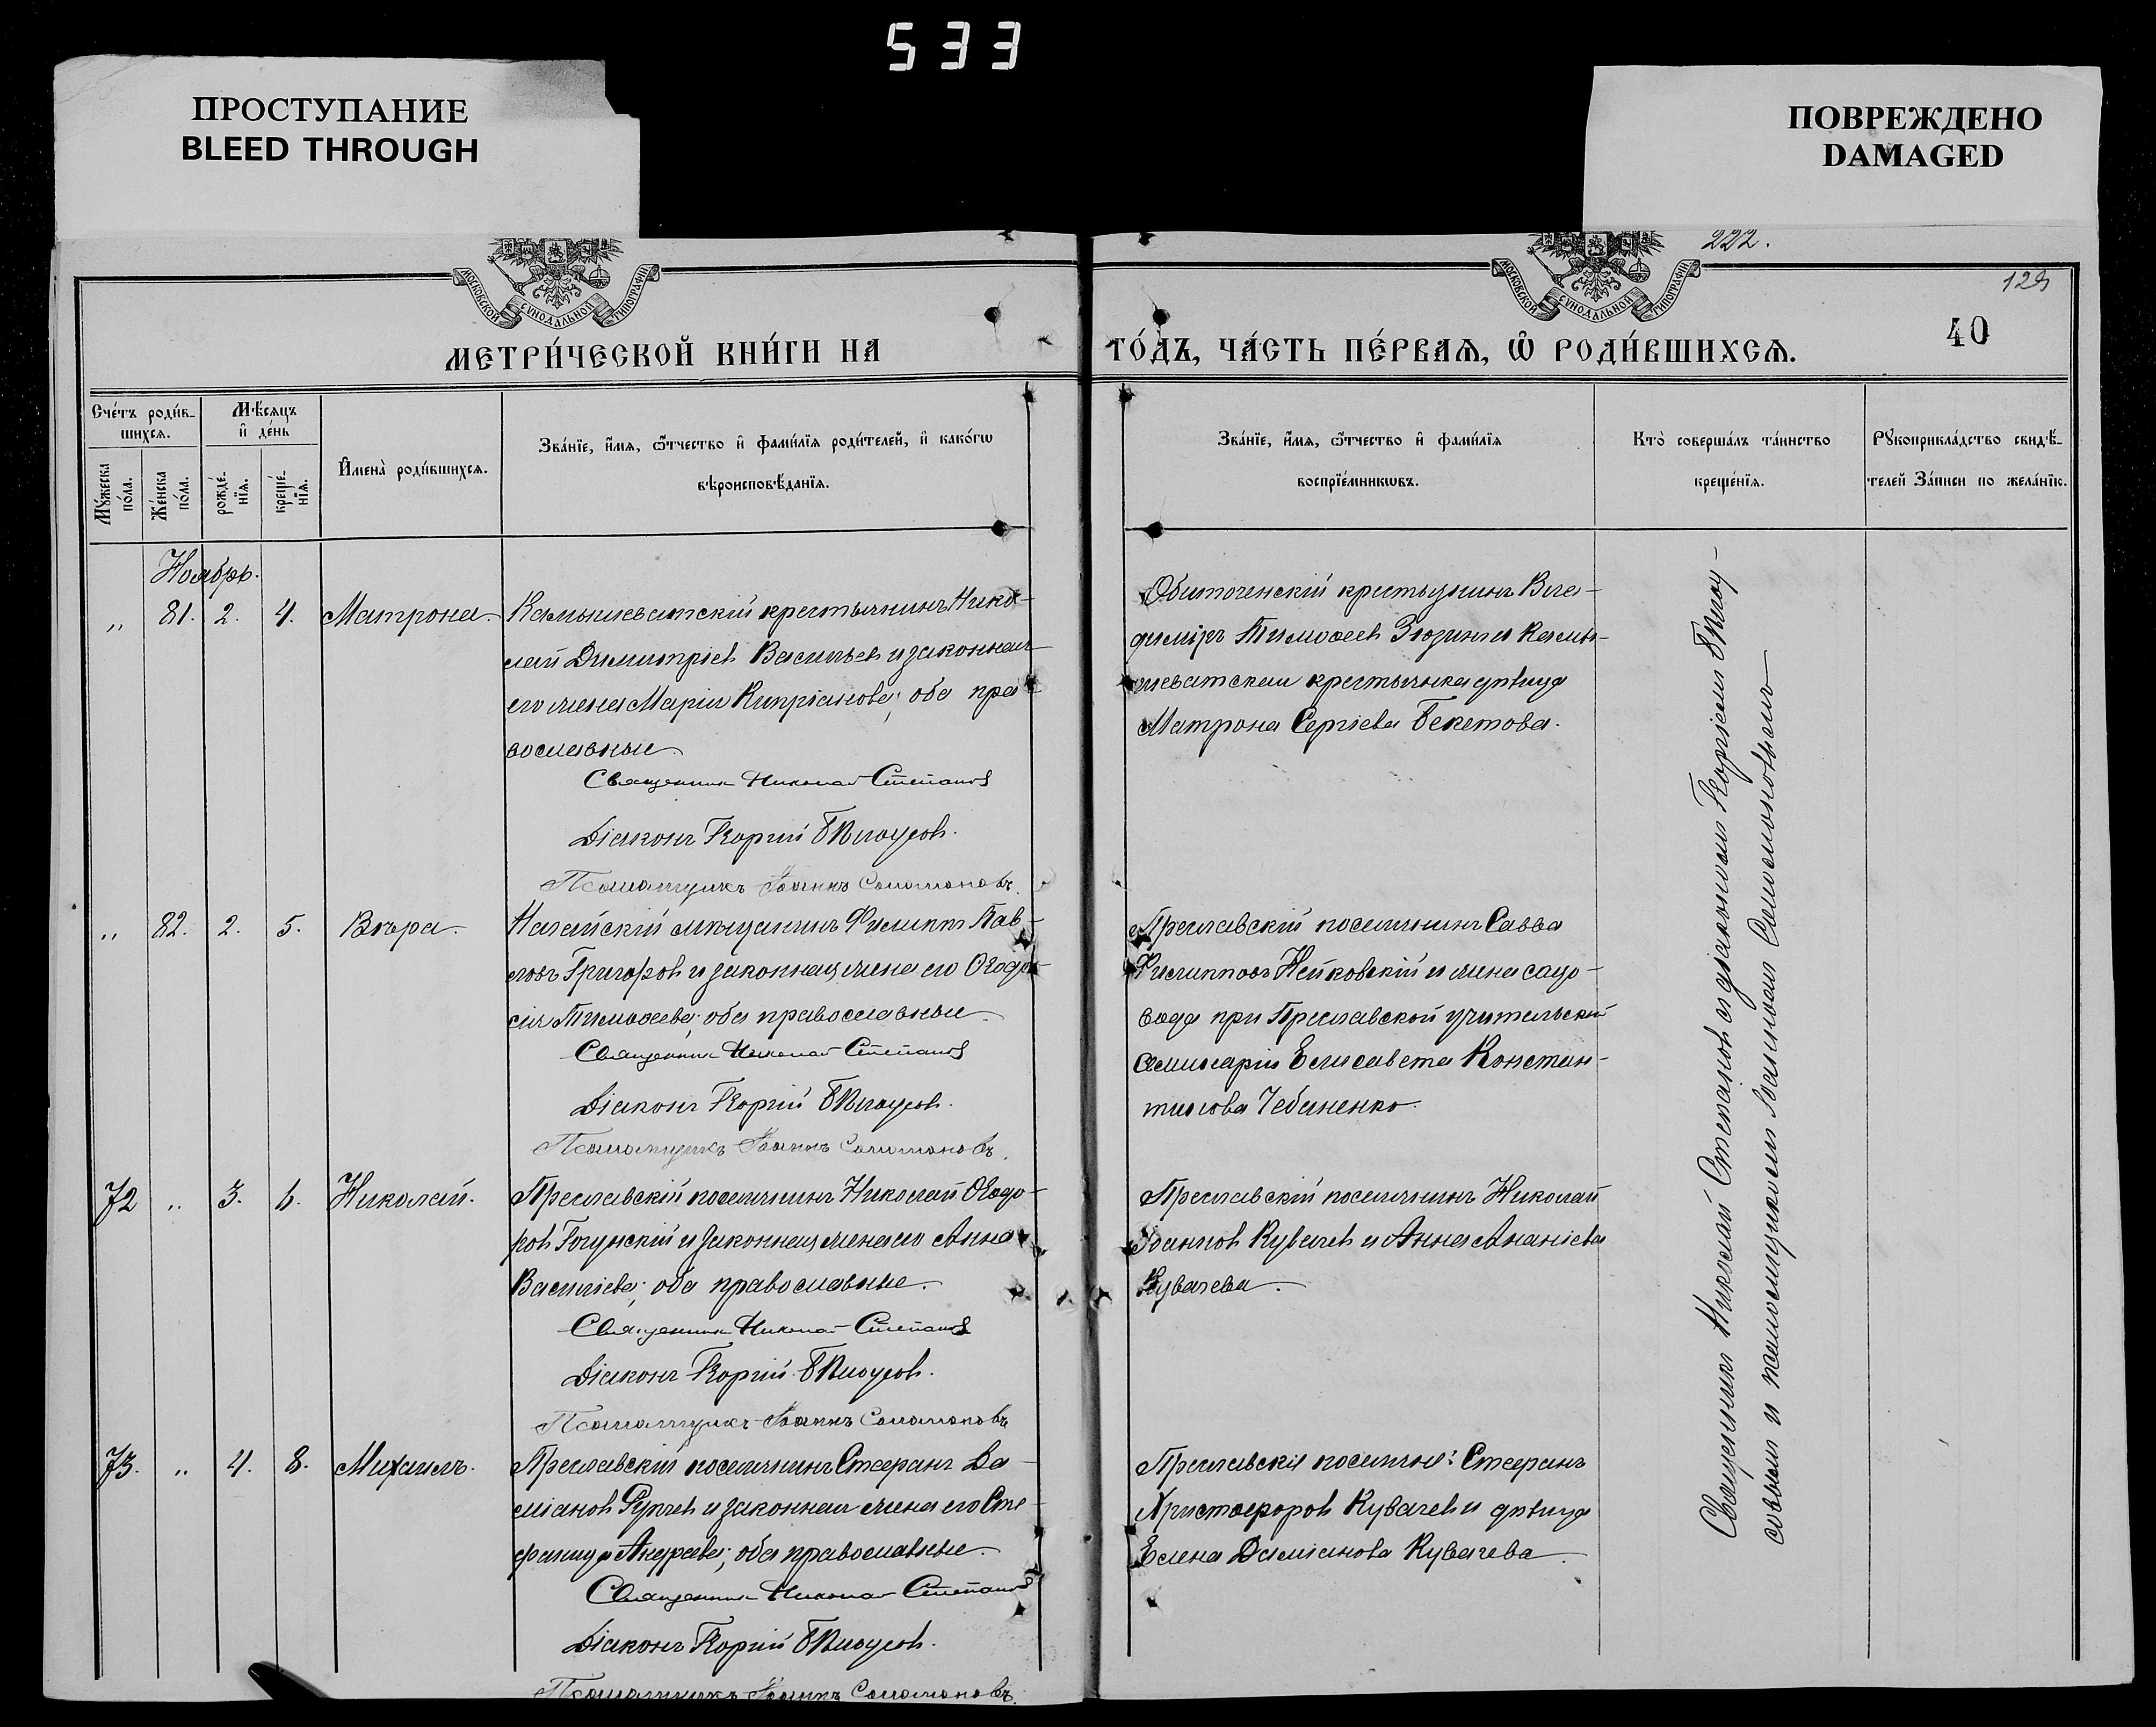 533
ПРОСТУПАНИЕ
BLEED THROUGH
ПОВРЕЖДЕНО
DAMAGED
222.
МОСКОВСКОЙ СѴНОДАЛЬНОЙ ТИПОГРАФІИ
МОСКОВСКОЙ СѴНОДАЛЬНОЙ ТИПОГРАФІИ
40
МЕТРИ́ЧЕСКОЙ КНИ́ГИ НА
ГО́ДЪ, ЧА́СТЬ ПЕ́РВАѦ, Ѡ҆ РОДИ́ВШИХСѦ.
Сче́тъ роди́в-
шихсѧ.
Мꙋ́жеска по́ла.
Же́нска по́ла.
Мѣ́сѧцъ и҆ де́нь
рожде́-
нїѧ.
креще́-
нїѧ.
И҆мена̀ роди́вшихсѧ.
Зва́нїе, и҆́мѧ, ѻ҆́тчество и҆ фами́лїѧ роди́телей, и҆ како́гѡ
вѣроисповѣ́данїѧ.
Зва́нїе, и҆́мѧ, ѻ҆́тчество и҆ фами́лїѧ
воспрїе́мникѡвъ.
Кто̀ соверша́лъ та́инство
креще́нїѧ.
Рꙋкоприкла́дство свидѣ́-
телей За́писи по жела́нїю.
Ноябрь.
„ 81. 2. 4. Матрона.
Камышеватскій крестьянинъ Нико-
лай Димитріевъ Васильевъ и законная
его жена Марія Кипріанова; оба пра-
вославные
Священникъ Николай Степановъ
Діаконъ Георгій Бѣлоусовъ.
Псаломщикъ Іоаннъ Соломоновъ.
Обиточенскій крестьянинъ Вла-
диміръ Тимоѳеевъ Зюзинъ и Камы-
шеватская крестьянка дѣвица
Матрона Сергіева Бекетова.
„ 82. 2. 5. Вѣра.
Ногайскій мѣщанинъ Филиппъ Пав-
ловъ Григоровъ и законная жена его Ѳеодо-
сія Тимоѳеева; оба православные.
Священникъ Николай Степановъ
Діаконъ Георгій Бѣлоусовъ.
Псаломщикъ Іоаннъ Соломоновъ.
Преславскій поселянинъ Савва
Филипповъ Нейковскій и жена садо-
вода при Преславской учительской
семинаріи Елисавета Констан-
тинова Чебаненко.
72 „ 3. 6. Николай.
Преславскій поселянинъ Николай Ѳеодо-
ровъ Гогунскій и законная жена его Анна
Васильева; оба православные.
Священникъ Николай Степановъ
Діаконъ Георгій Бѣлоусовъ.
Псаломщикъ Іоаннъ Соломоновъ
Преславскій поселянинъ Николай
Іоанновъ Кувачевъ и Анна Ананіева
Кувачева.
73. „ 4. 8. Михаилъ.
Преславскій поселянинъ Стефанъ Да-
міановъ Рупчевъ и законная жена его Сте-
фанида Андреева; оба православные.
Священникъ Николай Степановъ
Діаконъ Георгій Бѣлоусовъ.
Псаломщикъ Іоаннъ Соломоновъ.
Преславскіе поселяне: Стефанъ
Христофоровъ Кувачевъ и дѣвица
Елена Даміанова Кувачева.
Священникъ Николай Степановъ съ діакономъ Георгіемъ Бѣлоу-
совымъ и псаломщикомъ Іоанномъ Соломоновымъ